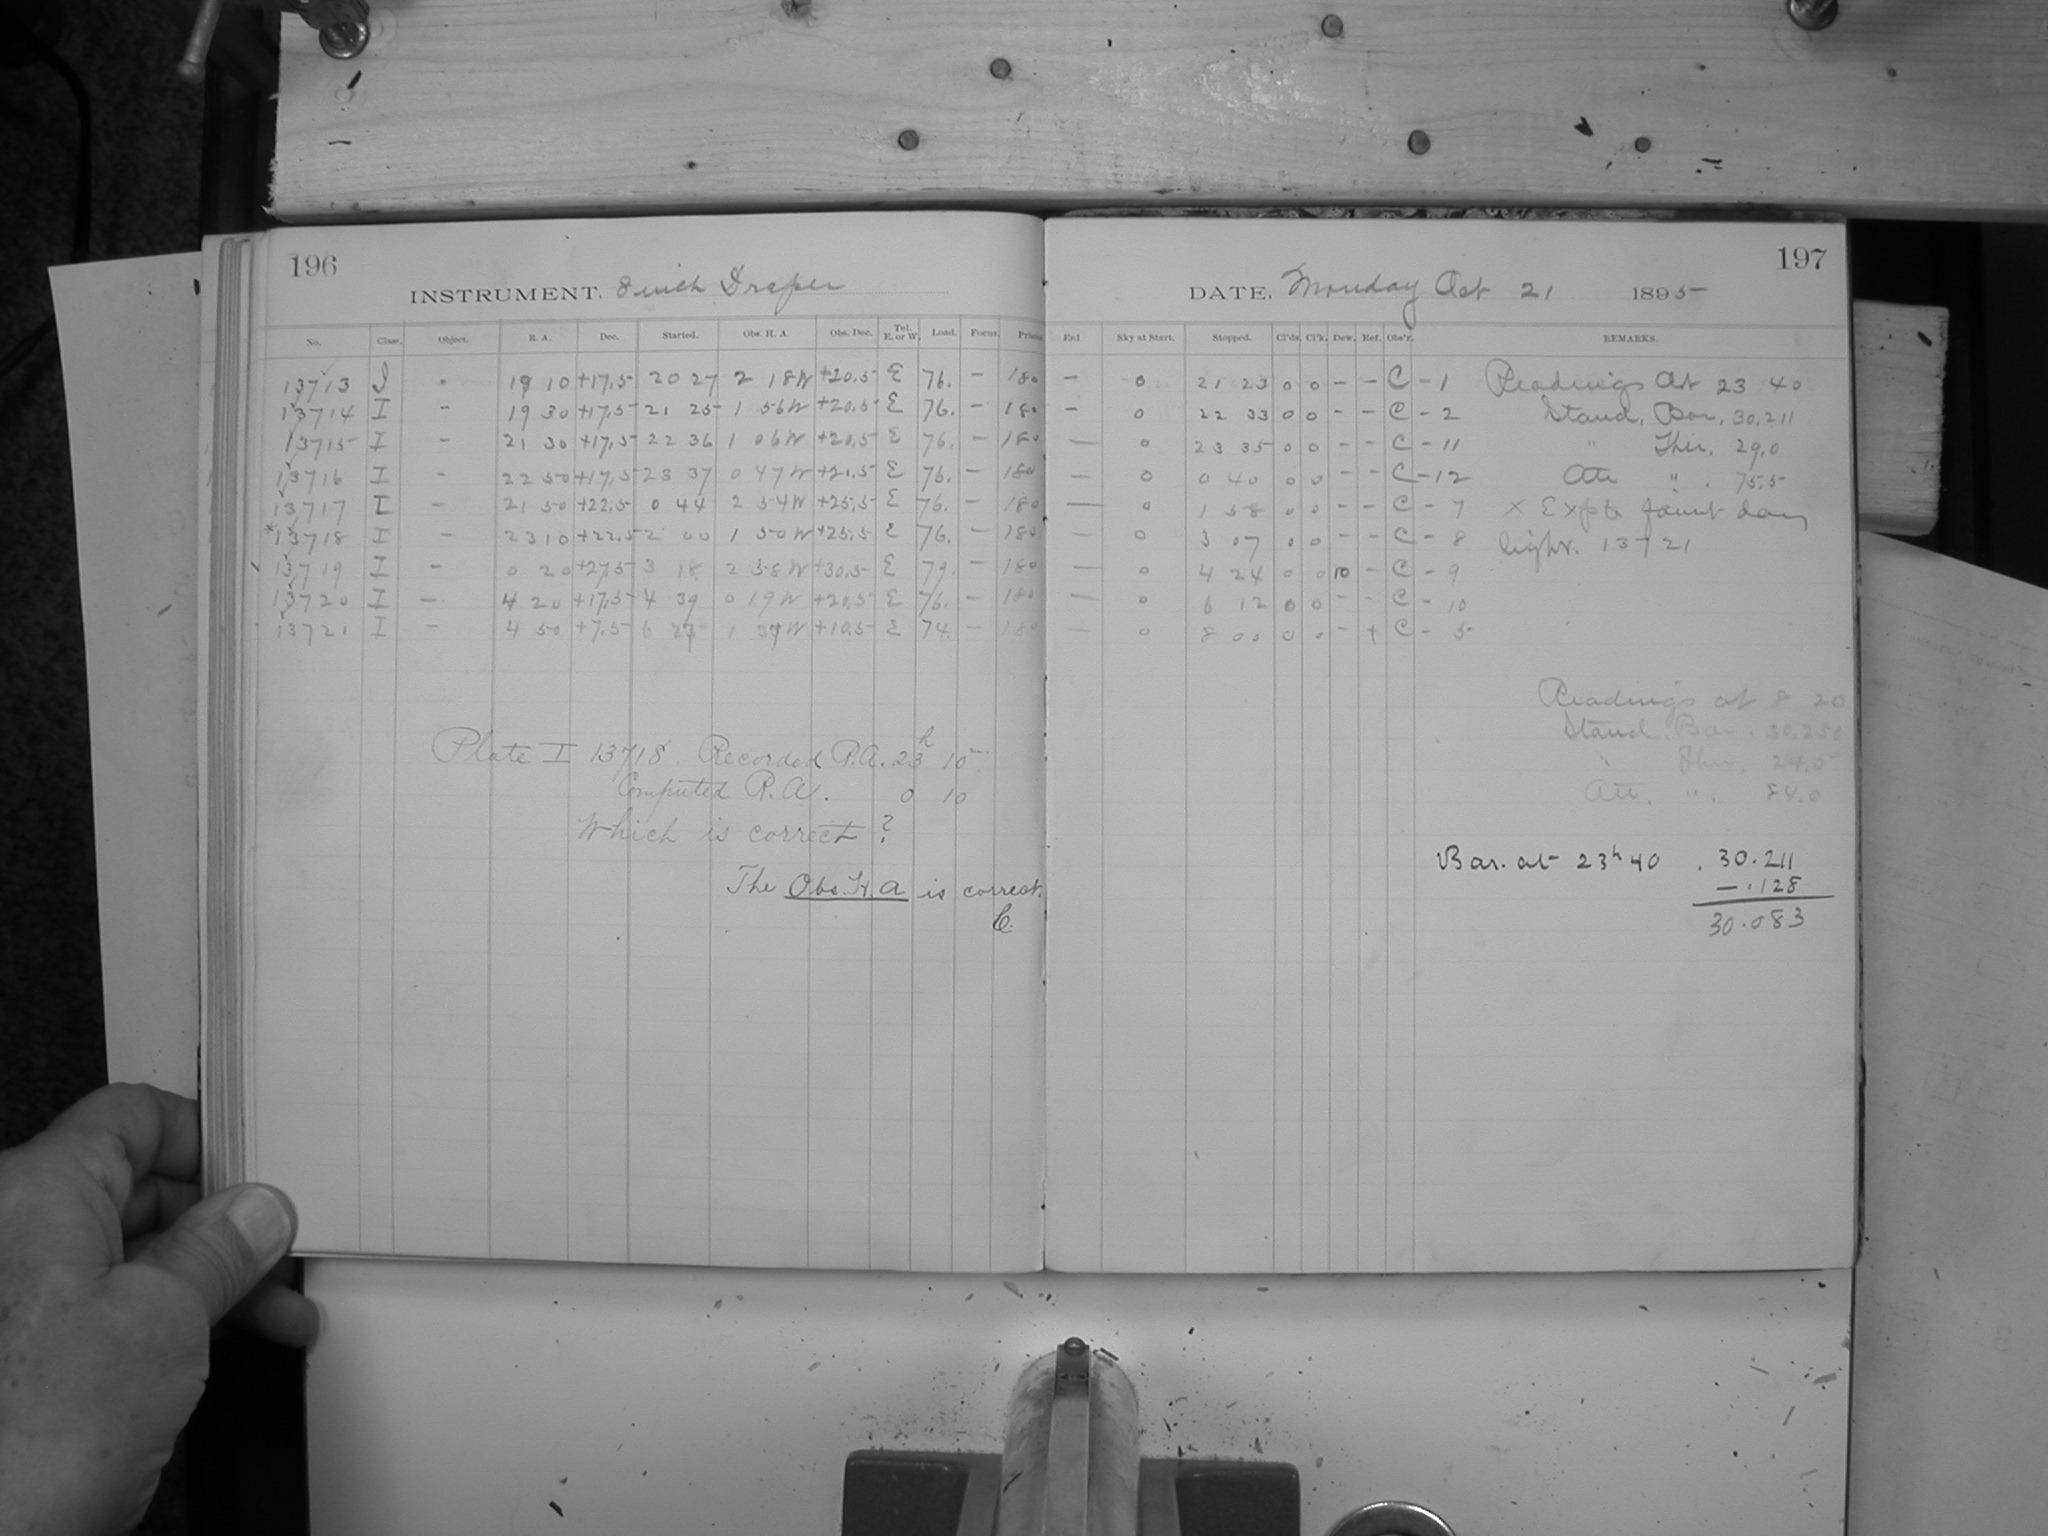 196
INSTRUMENT. 8 inch Draper
No. Class. Object. R. A. Dec. Started. Obs. H. A. Obs. Dec. Tel. E. or W. Load. Focus. Prism
13713 I - 19 10 +17.5 20 27 2 18W +20.5 E 76. - 180
13714 I - 19 30 +17.5 21 25 1 56W +20.5 E 76. - 180
13715 I - 21 30 +17.5 22 36 1 06W +20.5 E 76. - 180
13716 I - 22 50 +17.5 23 37 0 47W E 76. - 180
13717 I - 21 50 +22.5 0 44 2 54W +25.5 E 76. - 180
*13718 I - 23 10 +22.5 2 00 1 50W +25.5 E 76. - 180
13719 I - 0 20 +27.5 3 18 2 58W +30.5 E 79. - 180
13720 I - 4 20 +17.5 4 39 0 19W +20.5 E 76. - 180
13721 I - 4 50 +7.5 6 1 W +10.5 E 74. - 180
Plate I 13718. Recorded R.A. 23h 10m
Computed R.A. 0 10
Which is correct?
The Obs. H. A is correct.
C.
197
DATE. Monday Oct 21 1895
Enl Sky at Start. Stopped. Cl'ds. Cl'k. Dew. Ref. Obs'r. REMARKS.
- 0 21 23 0 0 - - C - 1 Readings at 23 40
- 0 22 33 0 0 - - C - 2 Stand. Bar. 30.211
- 0 23 35 0 0 - - C - 11 " Ther. 29.0
- 0 0 40 0 0 - - C - 12 Att " . 75.5
- 0 1 58 0 0 - - C - 7 × faint day
- 0 3 07 0 0 - - C - 8 light. 13721
- 0 4 24 0 0 10 - C - 9
- 0 6 12 0 0 - - C - 10
- 0 8 00 0 0 - + C - 5
Readings at 8 20
Stand. Bar. 30.250
" Ther. 24.5
Att. ". 84.0
Bar. at 23h 40 . 30.211
- .128
30.083